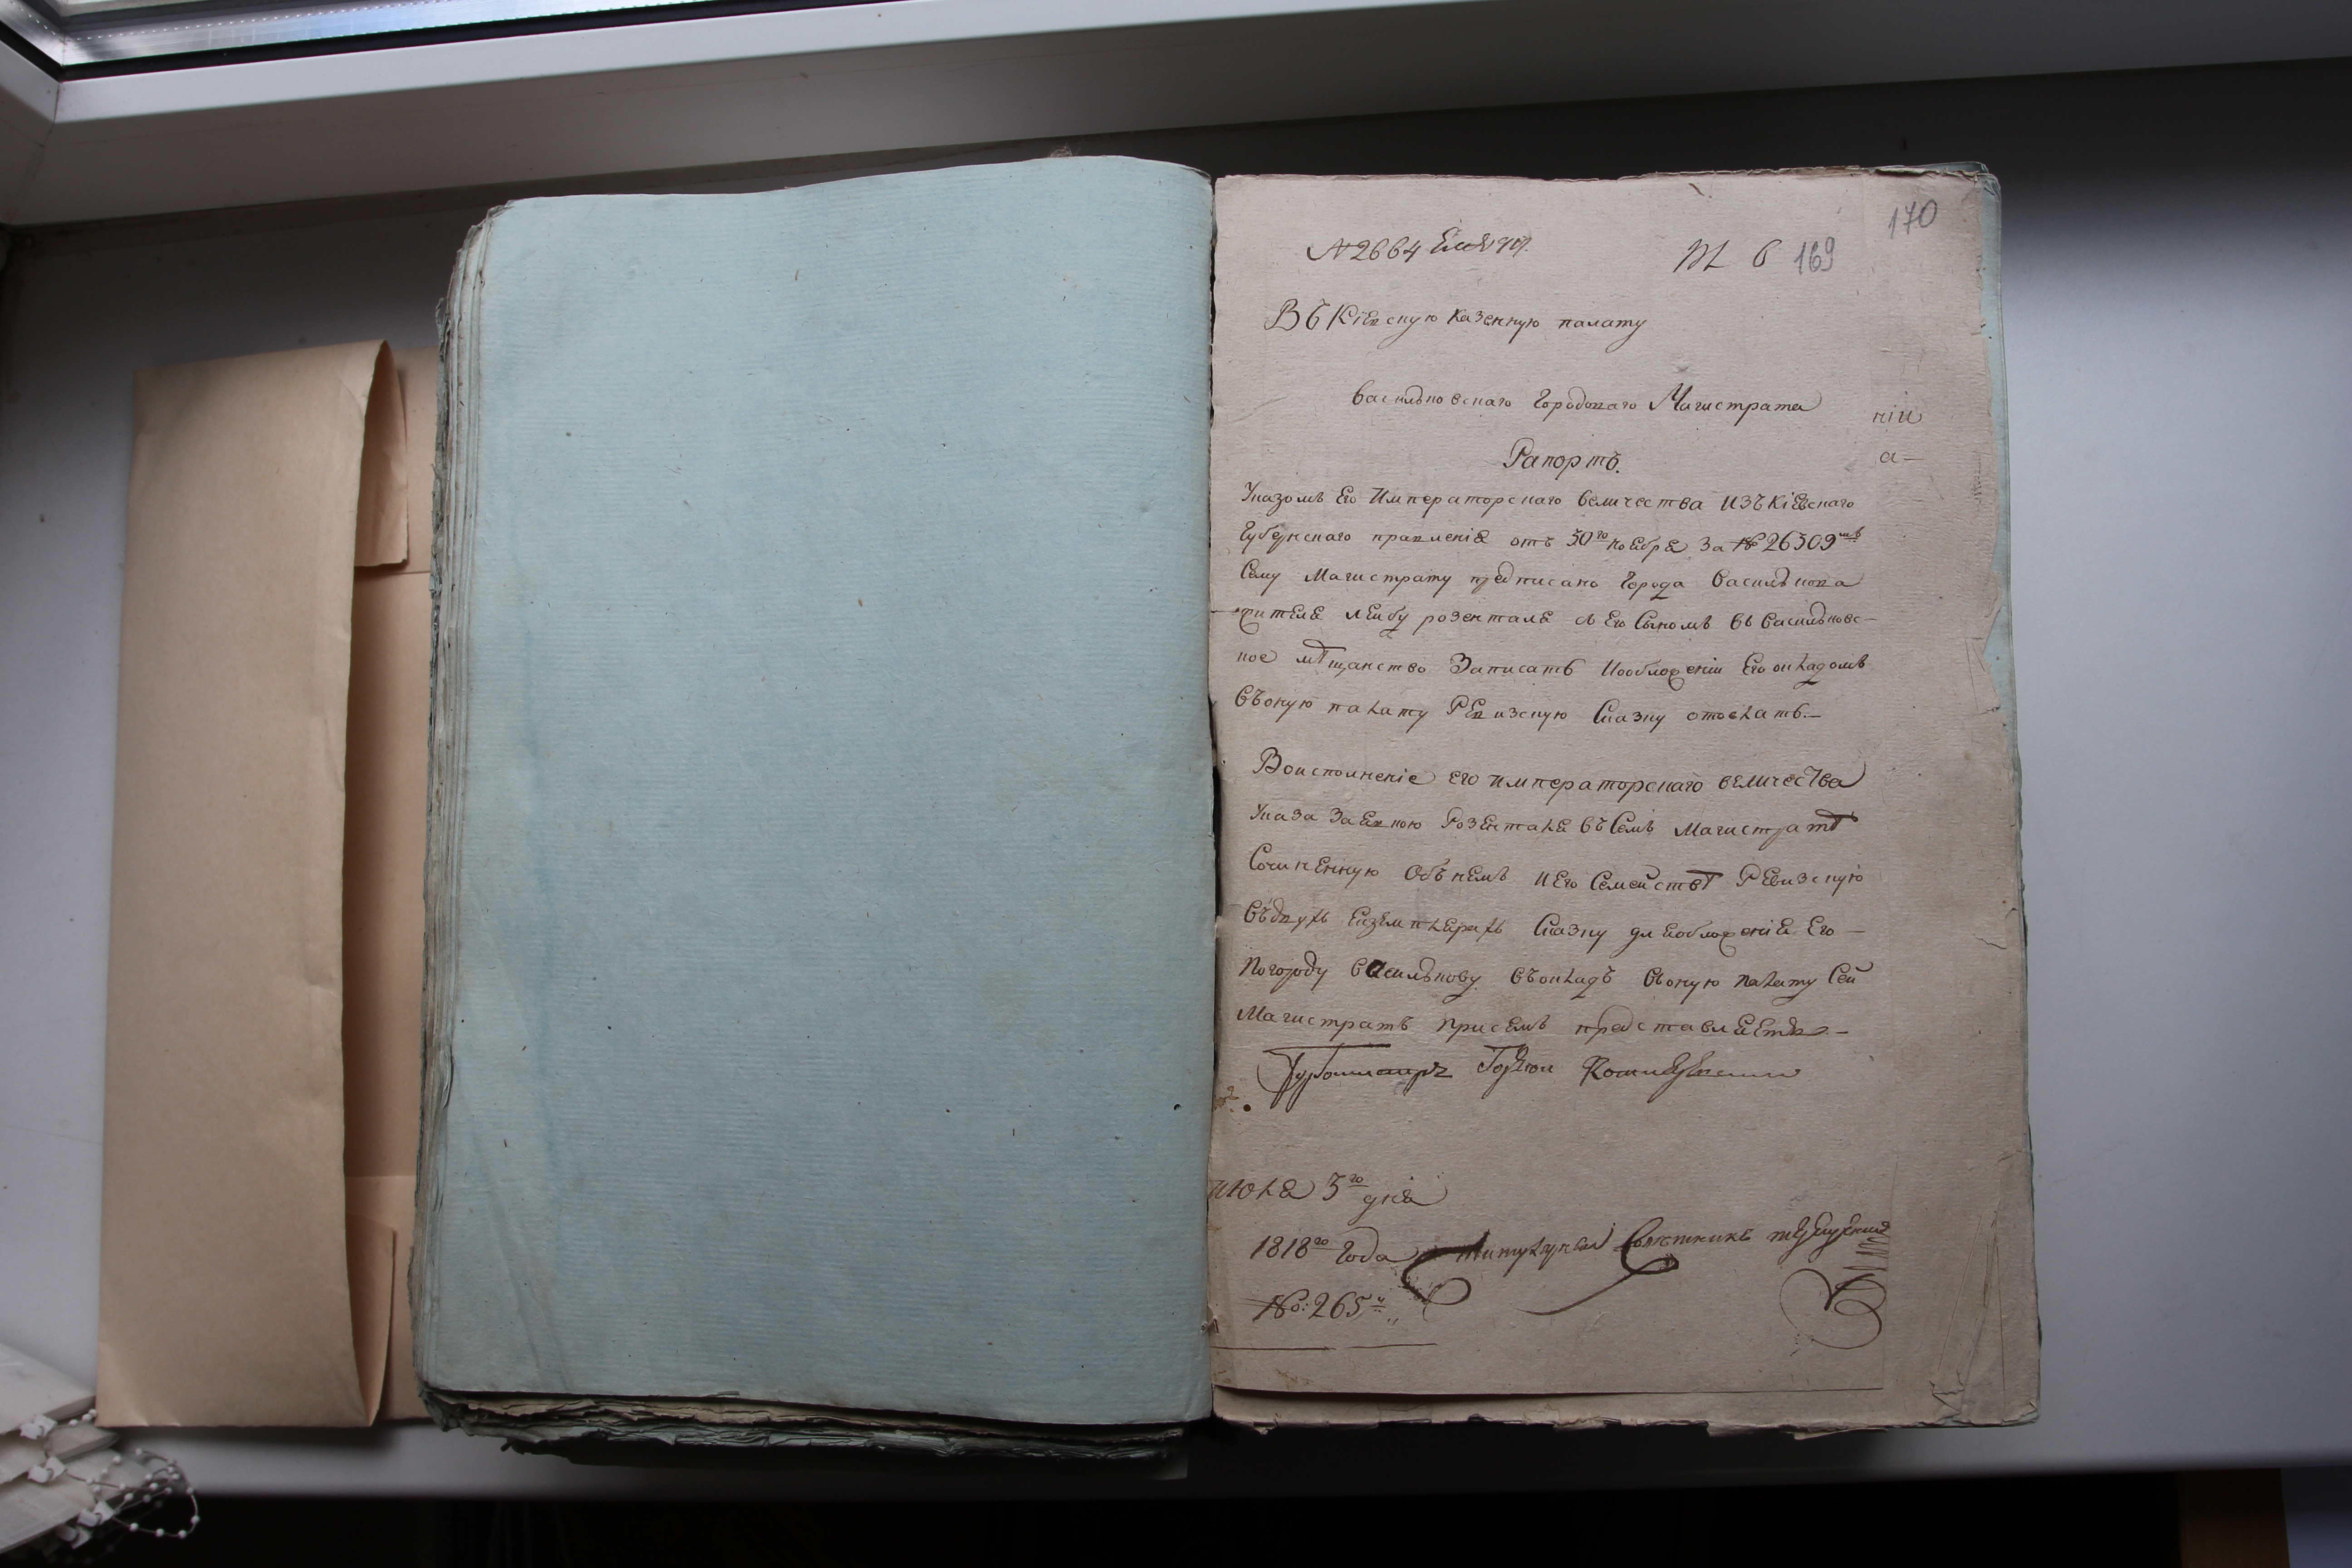 170
№ 2664
169
Въ Кіевскую казенную палату
Васильковскаго Городоваго Магистрата
ніи
Рапортъ.
а—
Указомъ Его Императорскаго Величества изъ Кіевскаго
Губернскаго правленія отъ 30го ноября за № 26309мъ
Сему Магистрату предписано города Василькова
жителя Лейбу Розенталя съ Его Сыномъ въ Васильковс-
кое мѣщанство Записать и о обложеніи Его окладомъ
Въ оную палату Ревизскую Сказку отослать.—
Во исполненіе его императорскаго величества
Указа Заявкою Розенталя въ Семъ Магистратѣ
Сочиненную Объ немъ и Его Семействѣ Ревизскую
Въ двухъ Екземплярахъ Сказку для обложенія Его —
По городу Василькову въ окладъ Въ оную палату Сей
Магистратъ присемъ представляетъ.—
Бурмистръ
июля 3го дня
1818го Года Титулярный Советникъ
№: 265й